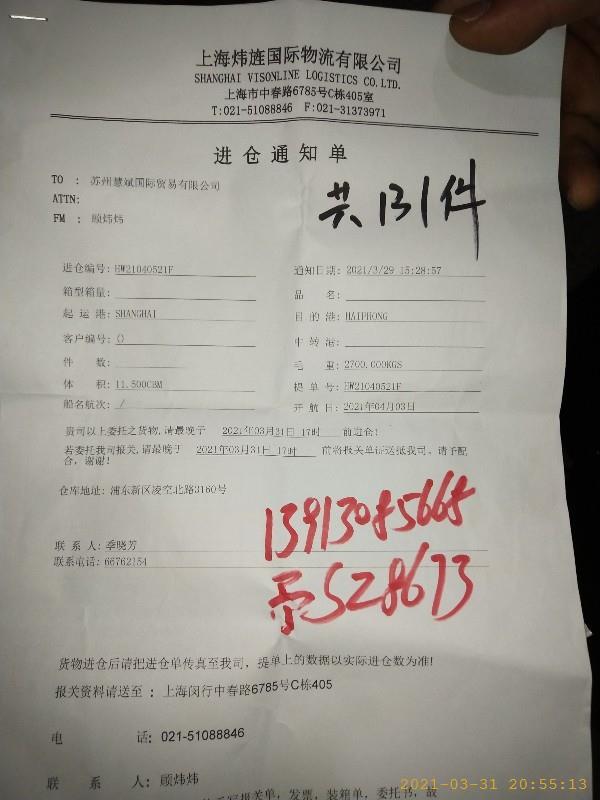 上海炜旌国际物流有限公司
SHANGHAI VISONLINE LOGISTICS CO.LTD.
上海市中春路6785号C栋405室
T:021-51088846 F:021-31373971
进仓通知单
TO : 苏州慧斌国际贸易有限公司
ATTN:
FM : 顾炜炜
共131件
进仓编号: HW21040521F 通知日期: 2021/3/29 15:28:57
箱型箱量: 品 名:
起 运 港: SHANGHAI 目 的 港: HAIPHONG
客户编号: () 中 转 港:
件 数: 毛 重: 2700.000KGS
体 积: 11.500CBM 提 单 号: HW21040521F
船名航次: / 开 航 日: 2021年04月03日
贵司以上委托之货物,请最晚于 2021年03月31日 17时 前进仓!
若委托我司报关,请最晚于 2021年03月31日 17时 前将报关单证送抵我司,请予配
合,谢谢!
仓库地址: 浦东新区凌空北路3160号
13913085668
苏528673
联 系 人: 季晓芳
联系电话: 66762154
货物进仓后请把进仓单传真至我司, 提单上的数据以实际进仓数为准!
报关资料请送至 : 上海闵行中春路6785号C栋405
电 话: 021-51088846
联 系 人: 顾炜炜
写报关单, 发票, 装箱单, 委托书, 故
2021-03-31 20:55:13